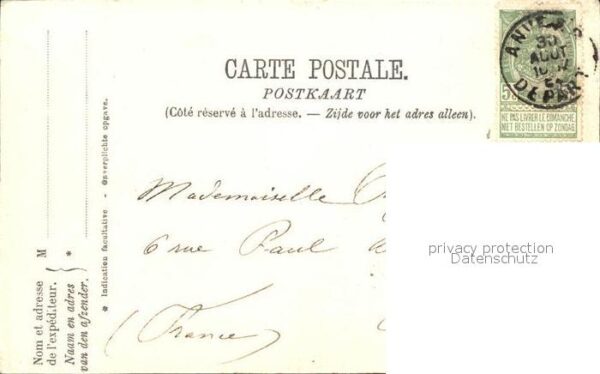 CARTE POSTALE.
POSTKAART
(Côté réservé à l'adresse. — Zijde voor het adres alleen).
ANVERS
30
AOUT
DEPART
NE PAS LIVRER LE DIMANCHE
NIET BESTELLEN OP ZONDAG
Mademoiselle
6 rue Paul
(France)
privacy protection
Datenschutz
Nom et adresse
de l'expéditeur.
Naam en adres
van den afzender.
M
*
* Indication facultative - Onverplichte opgave.